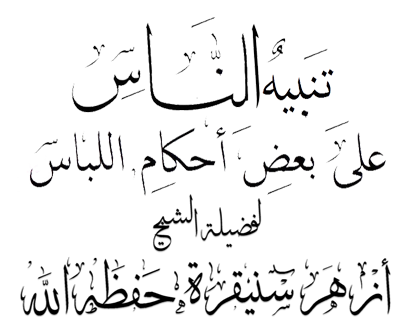 تنبيه الناس
على بعض أحكام اللباس
لفضيلة الشيخ
أزهر سنيقرة حفظه الله